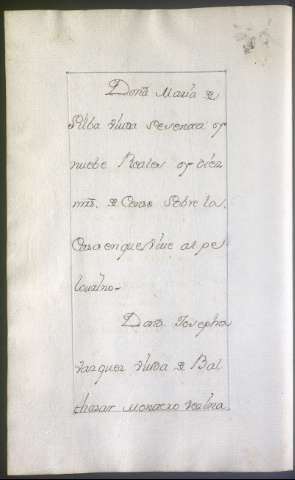 Doña Maria de
Silba viuda sesenta y
nuebe Reales y diez
mrs. de Censo sobre las
Casa en que viue al pe
lourino-
Dona Josepha
vazquez viuda de Bal
thazar Monttero vezina